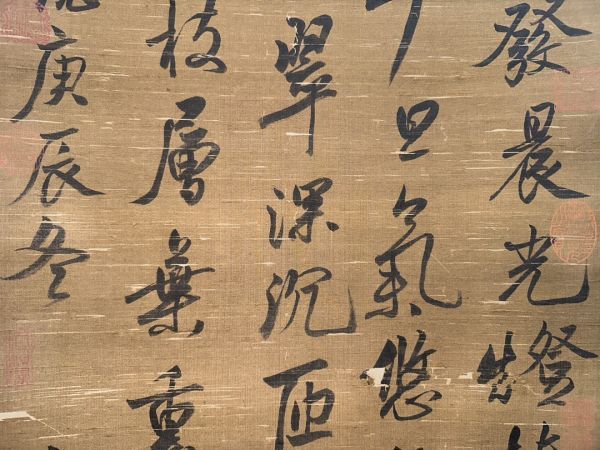 發晨光
旦氣悠
翠深沉匝
枝層葉重
庚辰冬